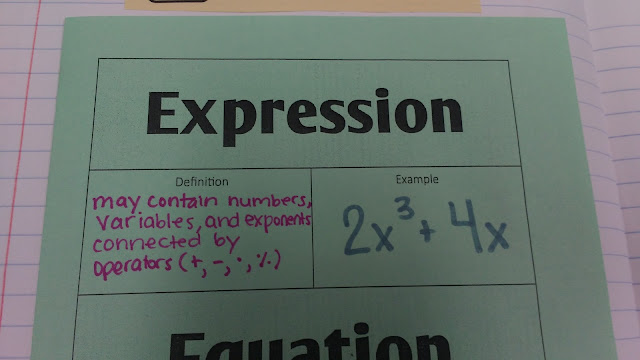 Expression
Definition
may contain numbers,
variables, and exponents
connected by
operators (+, -, ·, ÷)
Example
2x³ + 4x
Equation